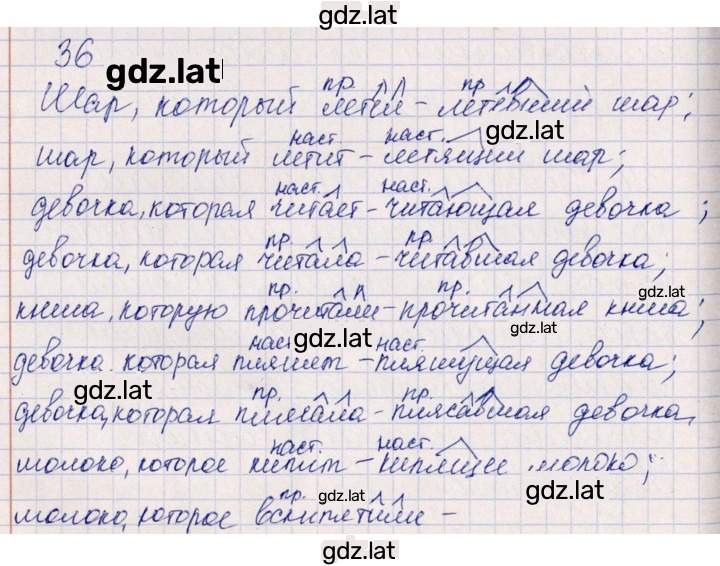 gdz.lat
36
gdz.lat
пр. пр.
Шар, который летел – летевший шар;
gdz.lat
наст. наст.
шар, который летит – летящий шар;
gdz.lat
наст. наст.
девочка, которая читает – читающая девочка;
пр. пр.
девочка, которая читала – читавшая девочка;
gdz.lat
пр. пр.
книга, которую прочитали – прочитанная книга;
gdz.lat
наст. наст.
девочка которая пляшет – пляшущая девочка;
gdz.lat
пр. пр.
девочка, которая плясала – плясавшая девочка,
наст. наст.
молоко, которое кипит – кипящее молоко;
gdz.lat
пр.
молоко, которое вскипятили –
gdz.lat
gdz.lat